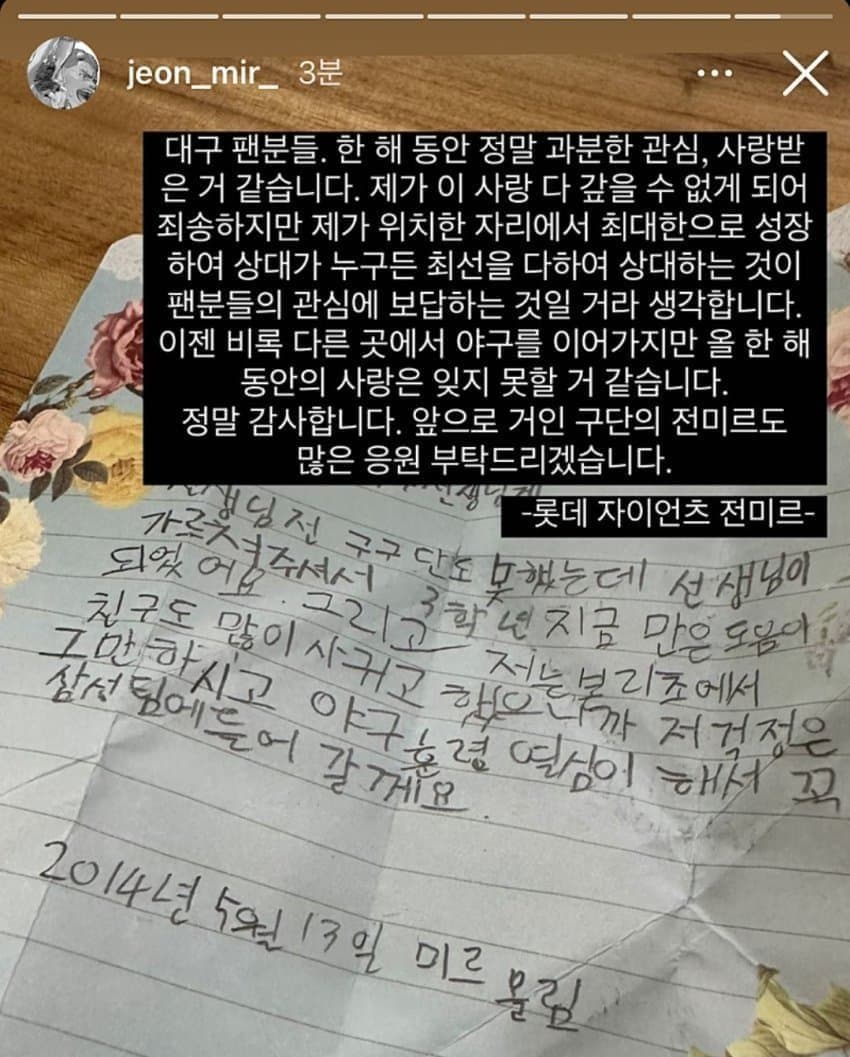 jeon_mir_ 3분
대구 팬분들. 한 해 동안 정말 과분한 관심, 사랑받
은 거 같습니다. 제가 이 사랑 다 갚을 수 없게 되어
죄송하지만 제가 위치한 자리에서 최대한으로 성장
하여 상대가 누구든 최선을 다하여 상대하는 것이
팬분들의 관심에 보답하는 것일 거라 생각합니다.
이젠 비록 다른 곳에서 야구를 이어가지만 올 한 해
동안의 사랑은 잊지 못할 거 같습니다.
정말 감사합니다. 앞으로 거인 구단의 전미르도
많은 응원 부탁드리겠습니다.
-롯데 자이언츠 전미르-
선생님께
선생님전 구구단도 못했는데 선생님이
가르쳐주셔서 3학년 지금 만은 도움이
되었어요. 그리고 저는 본리초에서
친구도 많이 사귀고 했으니까 저 걱정은
그만하시고 야구 훈령 열심이 해서 꼭
삼성팀에들어 갈께요.
2014년 5월 13일 미르 올림